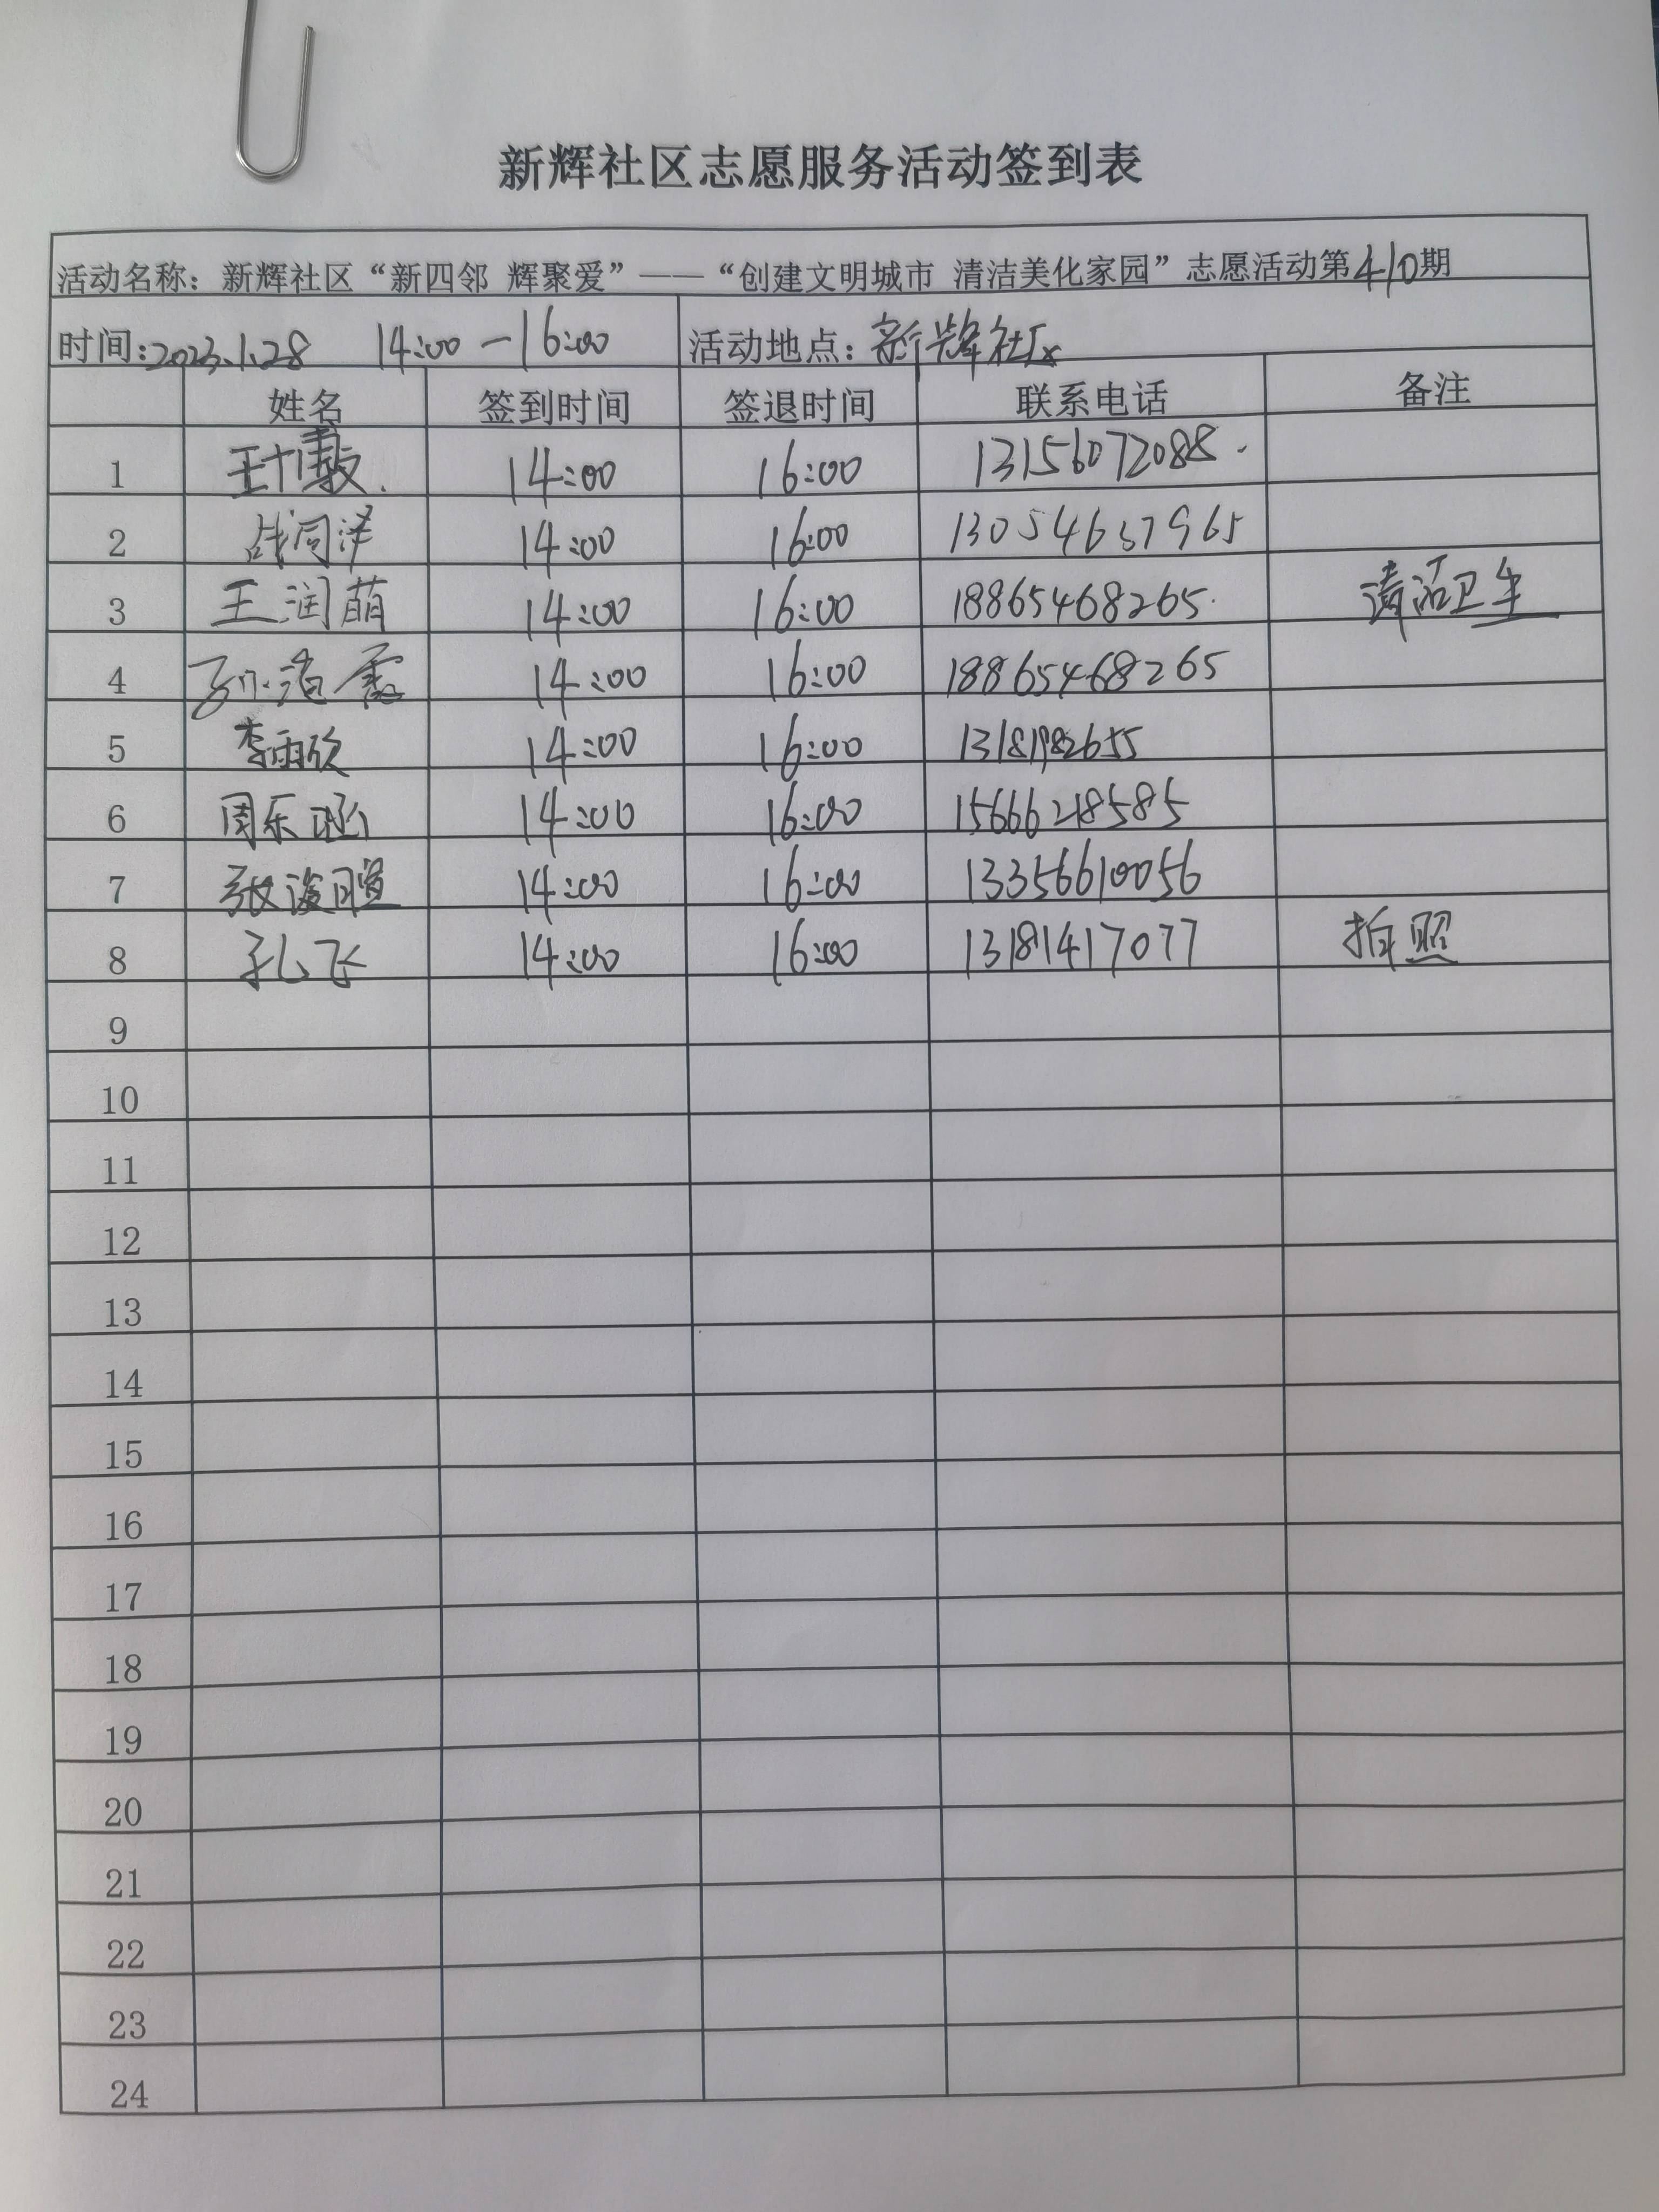 新辉社区志愿服务活动签到表
活动名称：新辉社区“新四邻 辉聚爱”——“创建文明城市 清洁美化家园”志愿活动第410期
时间：2023.1.28 14:00－16:00 活动地点：新辉社区
姓名 签到时间 签退时间 联系电话 备注
1 王博毅. 14:00 16:00 13156072088.
2 战同洋 14:00 16:00 13054637965
3 王润萌 14:00 16:00 18865468265. 清洁卫生
4 14:00 16:00 18865468265
5 李雨欣 14:00 16:00
6 周乐涵 14:00 16:00 15666218585
7 14:00 16:00 13356610056
8 孔飞 14:00 16:00 13181417077 拍照
9
10
11
12
13
14
15
16
17
18
19
20
21
22
23
24